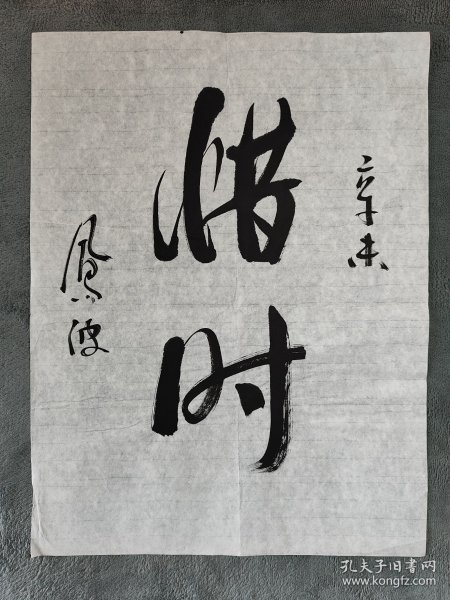 辛未
惜时
凤波
孔夫子旧书网
www.kongfz.com